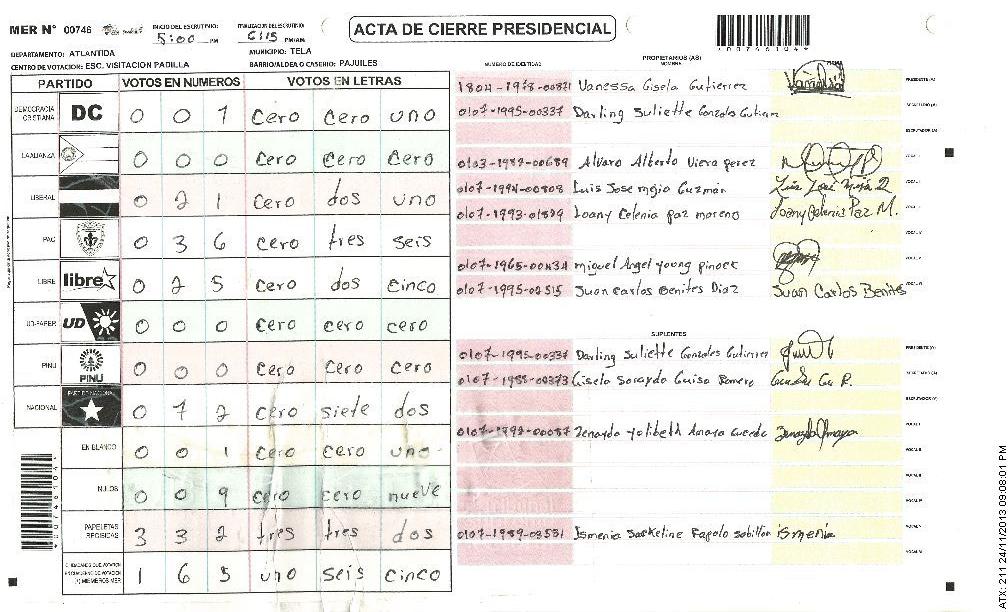 MER N° 00746
INICIO DEL ESCRUTINIO:
5:00 PM
FINALIZACION DEL ESCRUTINIO:
6:15 PM/AM
ACTA DE CIERRE PRESIDENCIAL
DEPARTAMENTO: ATLANTIDA
MUNICIPIO: TELA
CENTRO DE VOTACION: ESC. VISITACION PADILLA
BARRIO/ALDEA O CASERIO: PAJUILES
PARTIDO VOTOS EN NUMEROS VOTOS EN LETRAS
DEMOCRACIA CRISTIANA DC 0 0 1 cero cero uno
LA ALIANZA 0 0 0 cero cero cero
LIBERAL 0 2 1 cero dos uno
PAC 0 3 6 cero tres seis
LIBRE libre 0 2 5 cero dos cinco
UD-FAPER UD 0 0 0 cero cero cero
PINU PINU 0 0 0 cero cero cero
NACIONAL 0 7 2 cero siete dos
EN BLANCO 0 0 1 cero cero uno
NULOS 0 0 9 cero cero nueve
PAPELETAS RECIBIDAS 3 3 2 tres tres dos
1 6 5 uno seis cinco
NUMERO DE IDENTIDAD
PROPIETARIOS (AS)
NOMBRE
1804-1978-00821 Vanessa Gisela Gutierrez PRESIDENTE (A)
0107-1995-00337 Darling Suliette Gonzales Gutierr SECRETARIO (A)
ESCRUTADOR (A)
0103-1982-00689 Alvaro Alberto Viera perez
0107-1994-00808 Luis Jose mejia Guzmán
0107-1993-01829 Loany Celenia paz moreno Loany Celenia Paz M.
0107-1965-00434 miguel Angel young pinock
0107-1995-02515 Juan Carlos Benites Diaz Juan Carlos Benites
SUPLENTES
0107-1995-00337 Darling Suliette Gonzales Gutierrez PRESIDENTE (A)
0107-1988-00373 Gisela SECRETARIO (A)
ESCRUTADOR (A)
0107-1992-00087 Zenayda Yolibeth Amaya
0107-1989-03531 Ismenia Ismenia
ATX: 211 24/11/2013 09:08:01 PM